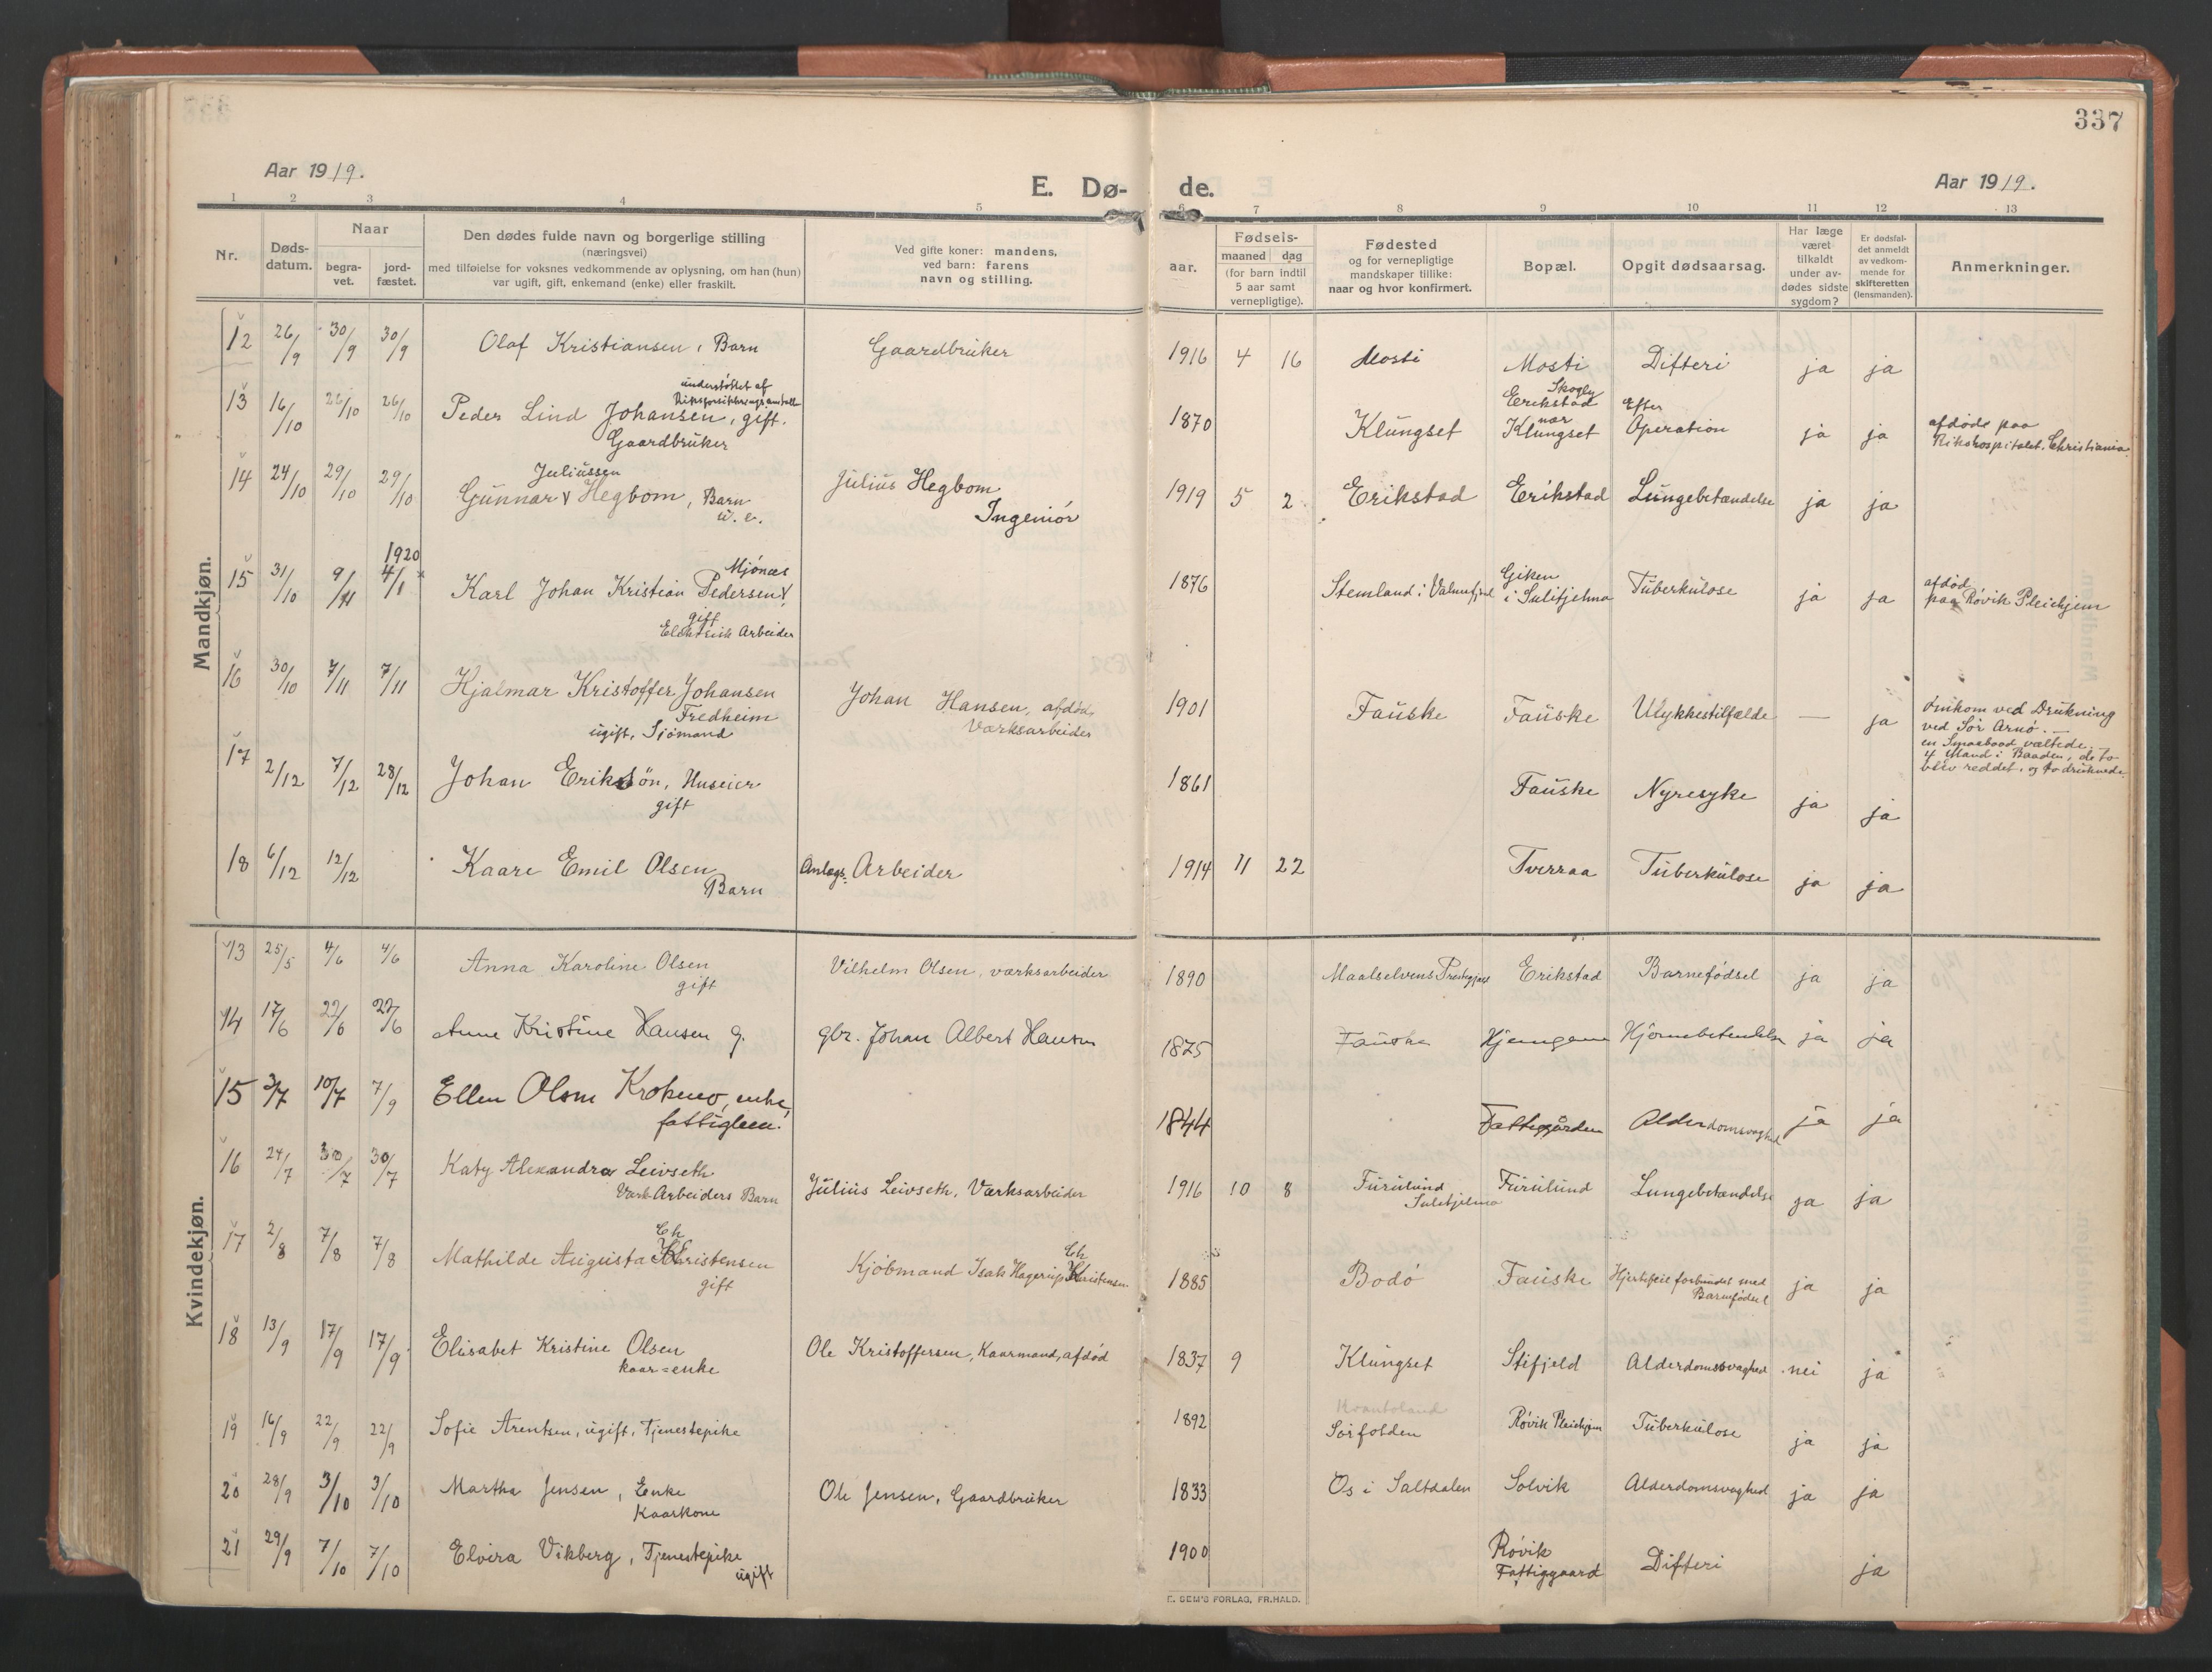 337
Aar 1919.
E. Dø- de.
Aar 1919.
1 2 3 4 5 6 7 8 9 10 11 12 13
Nr.
Døds-
datum.
Naar
begra-
vet.
jord-
fæstet.
Den dødes fulde navn og borgerlige stilling
(næringsvei)
med tilføielse for voksnes vedkommende av oplysning, om han (hun)
var ugift, gift, enkemand (enke) eller fraskilt.
Ved gifte koner: mandens,
ved barn: farens
navn og stilling.
aar.
Fødsels-
maaned dag
(for barn indtil
5 aar samt
vernepligtige).
Fødested
og for vernepligtige
mandskaper tillike:
naar og hvor konfirmert.
Bopæl.
Opgit dødsaarsag.
Har læge
været
tilkaldt
under av-
dødes sidste
sygdom?
Er dødsfal-
det anmeldt
av vedkom-
mende for
skifteretten
(lensmanden).
Anmerkninger.
Mandkjøn.
12 26/9 30/9 30/9 Olaf Kristiansen, Barn Gaardbruker 1916 4 16 Mosti Mosti Difteri ja ja
understøttet af
Riksforsikringsanstalt
Skogly
13 16/10 26/10 26/10 Peder Lind Johansen, gift. 1870 Klungset Erikstad Efter
Gaardbruker
nær
Klungset Operation ja ja afdøde paa
Rikshospitalet. Christiania.
Juliussen
14 24/10 29/10 29/10 Gunnar v Hegbom, Barn Julius Hegbom 1919 5 2 Erikstad Erikstad Lungebetændelse ja ja
u. e. Ingeniør
1920 Mjönæs
15 31/10 9/11 4/1 * Karl Johan Kristian Pedersen v, 1876 Stemland i Valnesfjord Giken
i Sulitjelma Tuberkulose ja ja afdød
paa Røvik Pleiehjem
gift
Elektrisk Arbeider
16 30/10 7/11 7/11 Hjalmar Kristoffer Johansen Johan Hansen, afdød, 1901 Fauske Fauske Ulykkestilfælde — ja Omkom ved Drukning
Fredheim Værksarbeider ved Sør Arnø. —
ugift, Sjømand en Smaabaad væltede.
4 Mand i Baaden, de to
blev reddet, og to druknede.
17 2/12 7/12 28/12 Johan Eriksön, Huseier 1861 Fauske Nyresyke ja ja
gift
18 6/12 12/12 Kaare Emil Olsen Anlægs. Arbeider 1914 11 22 Tverraa Tuberkulose ja ja
Barn
Kvindekjøn.
13 25/5 4/6 4/6 Anna Karoline Olsen Vilhelm Olsen, værksarbeider 1890 Maalselvens Prestegjæld Erikstad Barnefødsel ja ja
gift
14 17/6 22/6 22/6 Anne Kristine Hansen g. gbr. Johan Albert Hansen 1875 Fauske Hjernebetendelse ja ja
15 3/7 10/7 7/9 Ellen Olsen enke, 1844 Fattiggården Alderdomsvaghed ja ja
fattiglem.
16 24/7 30/7 30/7 Katy Alexandra Leivseth Julius Leivseth, Værksarbeider 1916 10 8 Furulund Furulund Lungebetændelse ja ja
Værk Arbeiders Barn Sulitjelma
Ch Ch
17 2/8 7/8 7/8 Mathilde Augusta Kristensen Kjøbmand Isak Hagerup Kristensen. 1885 Bodø Fauske Hjertefeil forbundet med ja ja
gift Barnefødsel
18 13/9 17/9 17/9 Elisabet Kristine Olsen Ole Kristoffersen, Kaarmand, afdød 1837 9 Klungset Stifjeld Alderdomssvaghed nei ja
kaar=enke
19 16/9 22/9 22/9 Sofie Arentsen, ugift, Tjenestepike 1892 Sørfolden Røvik Pleiehjem Tuberkulose ja ja
20 28/9 3/10 3/10 Martha Jensen, Enke Ole Jensen, Gaardbruker 1833 Os i Saltdalen Solvik Alderdomsvaghed ja ja
Kaarkone
21 29/9 7/10 7/10 Elvira Vikberg, Tjenestepike 1900 Røvik
Fattiggaard Difteri ja
ugift
E. SEM'S FORLAG, FR.HALD.